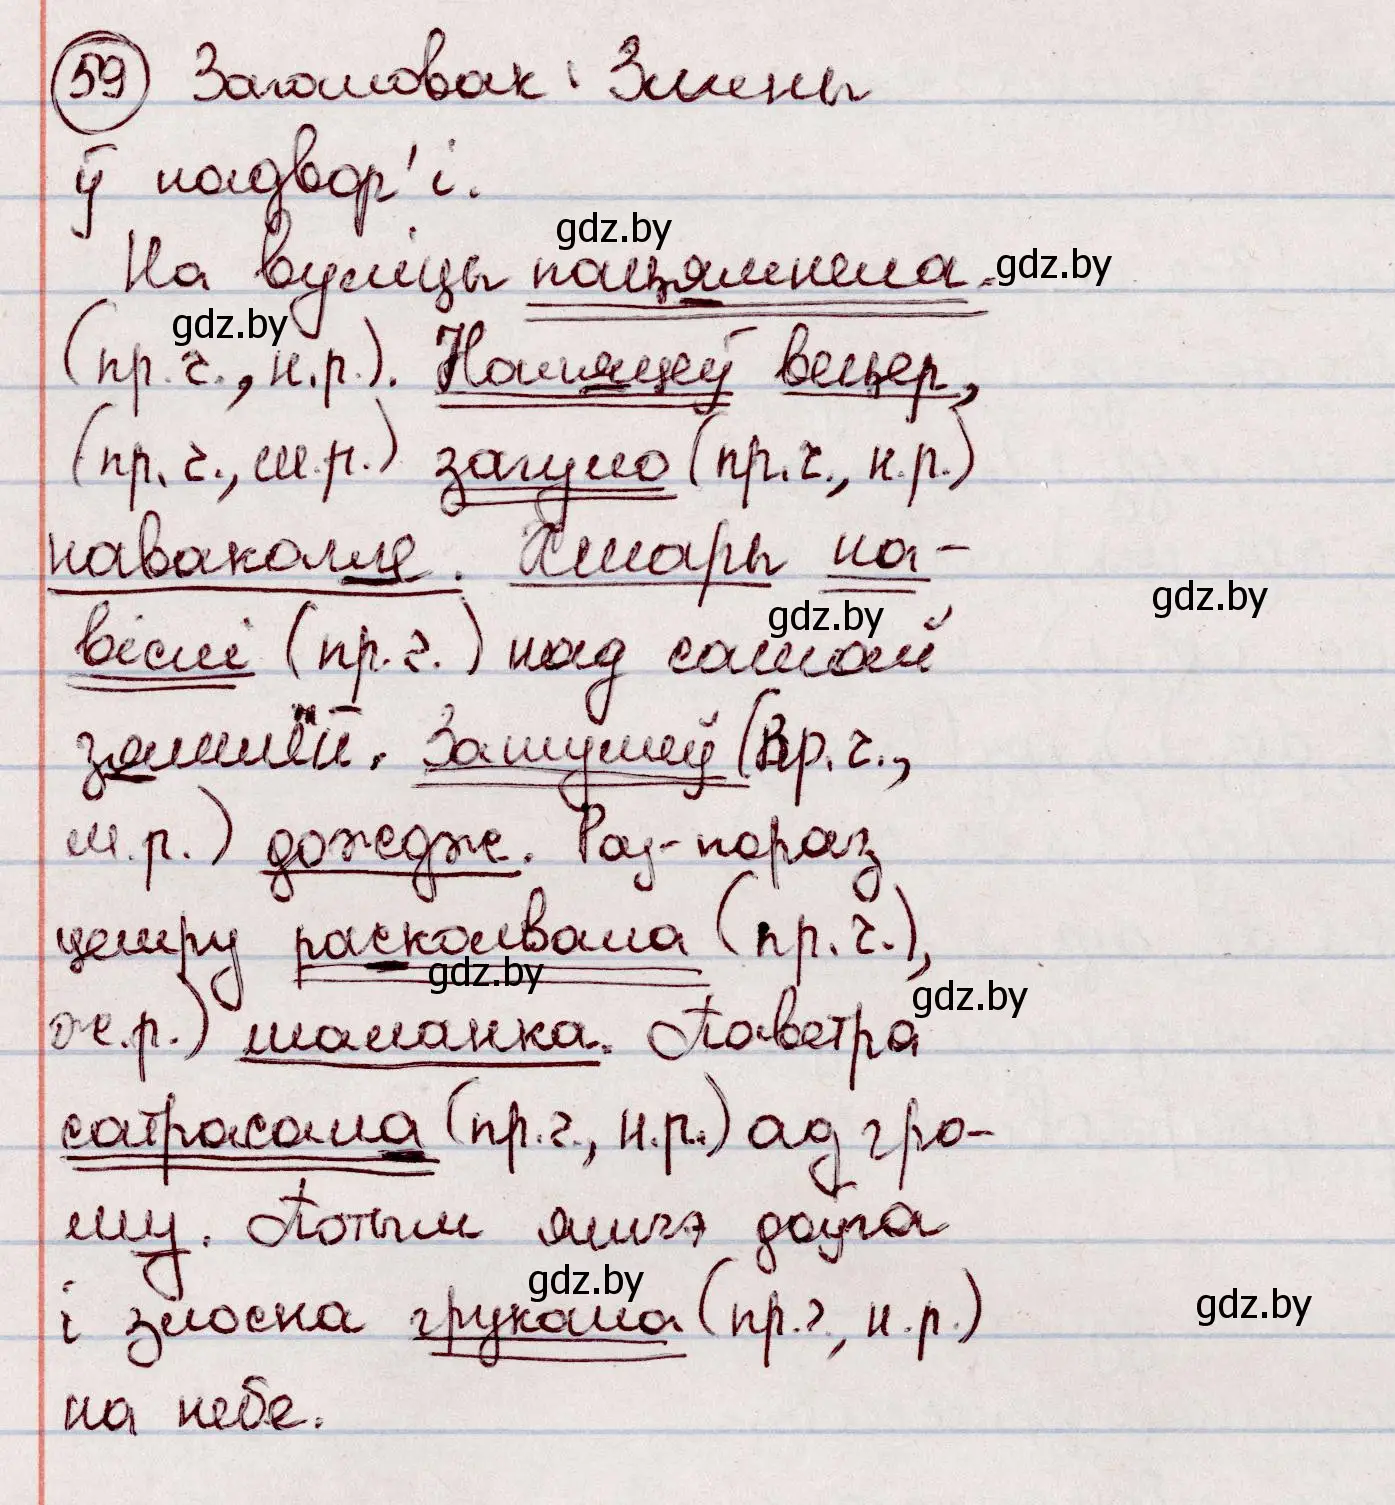 59 Загаловак: Змены
ў надвор'і.
gdz.by
На вуліцы пацямнела. gdz.by
gdz.by
(пр.ч., н.р.). Наляцеў вецер,
(пр.ч., м.р.) загуло (пр.ч., н.р.)
наваколле. Хмары на-
gdz.by gdz.by
віслі (пр.ч.) над самай
зямлёй. Зашумеў (пр.ч.,
м.р.) дождж. Раз-пораз
цемру расколвала (пр.ч.),
gdz.by gdz.by
ж.р.) маланка. Паветра
сатрасала (пр.ч., н.р.) ад гро-
му. Потым яшчэ доўга
gdz.by gdz.by
і злосна грукала (пр.ч., н.р.)
на небе.